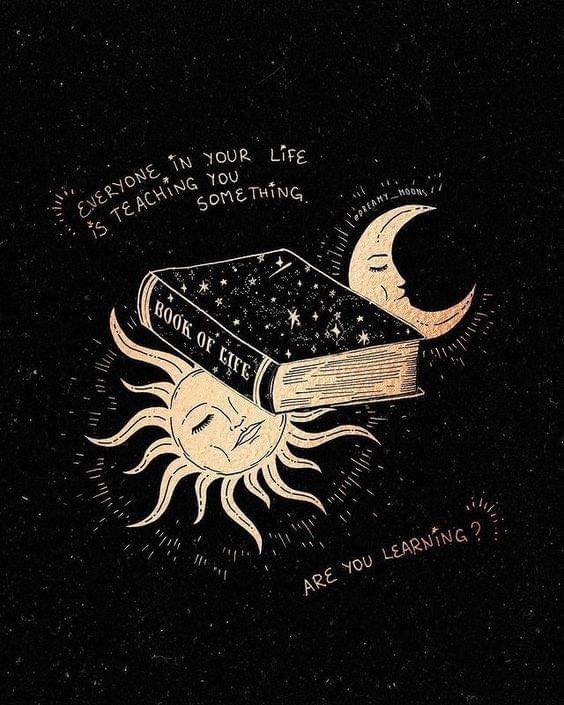 EVERYONE IN YOUR LIFE
IS TEACHING YOU
SOMETHING.
@DREAMY_MOONS
BOOK OF LIFE
ARE YOU LEARNING?